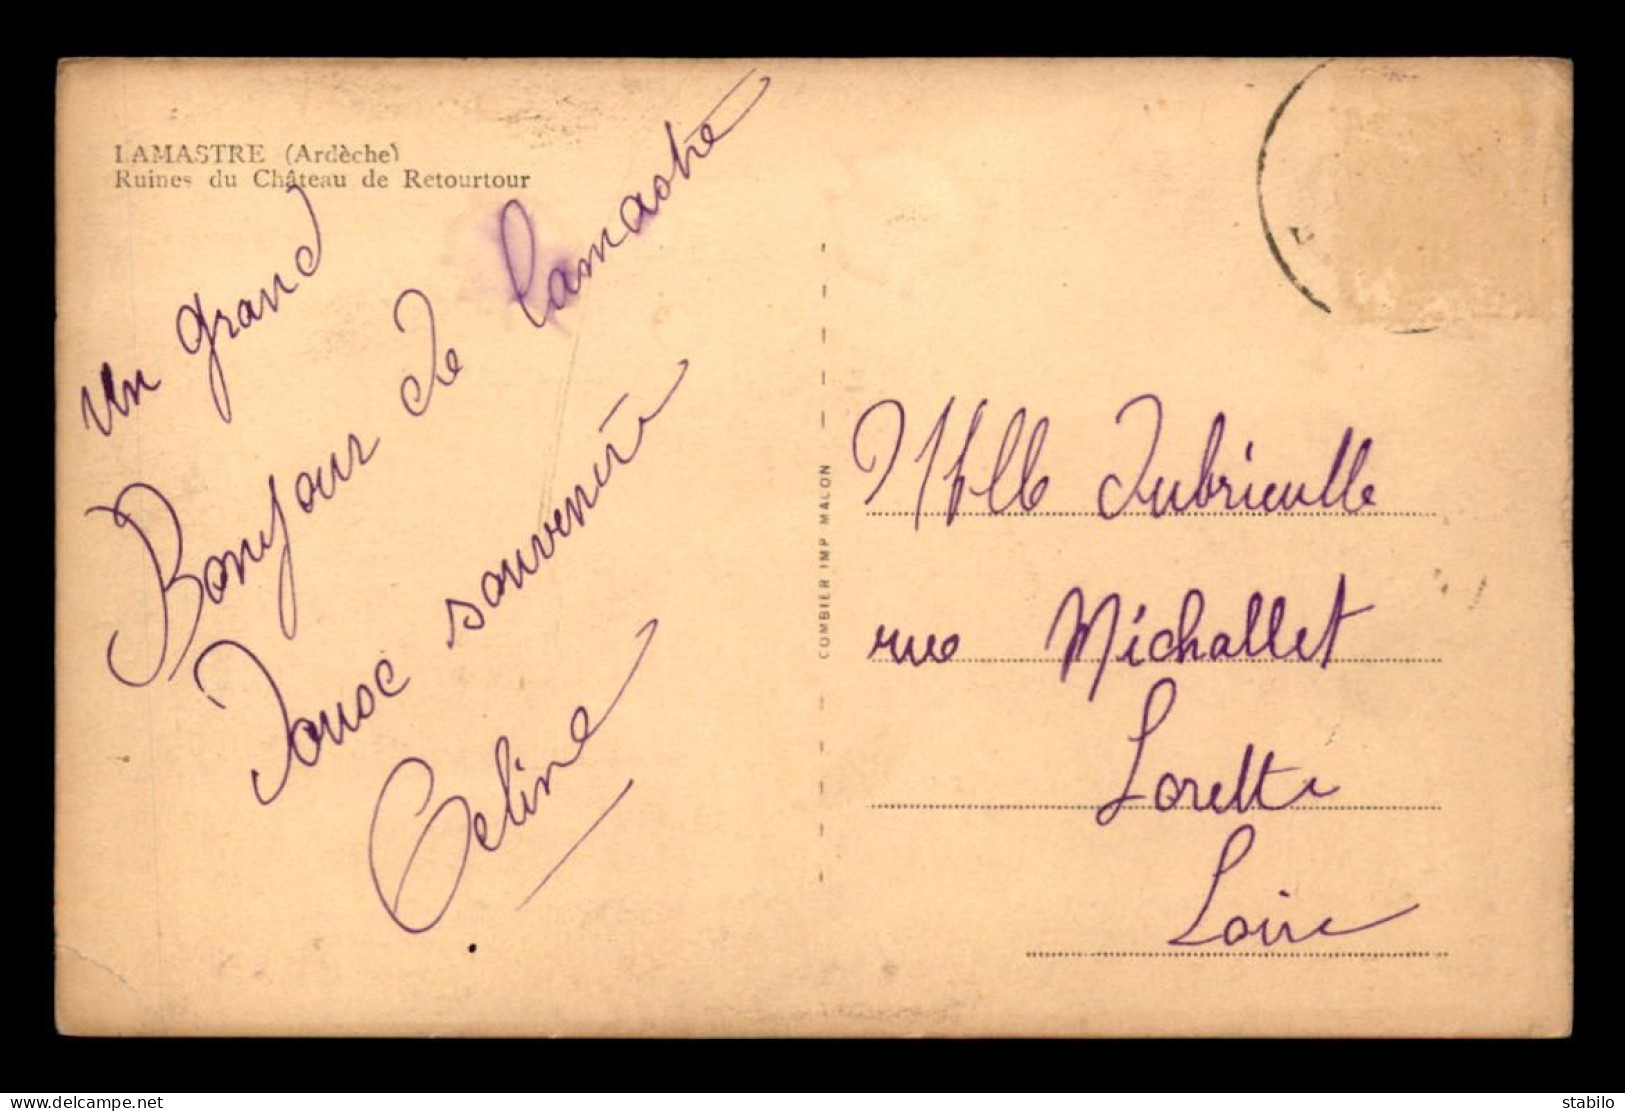 LAMASTRE (Ardèche)
Ruines du Château de Retourtour
un grand
Bonjour de lamastre
Douse souvenir
Celine
COMBIER IMP MACON
Melle Dubrieulle
rue Michallet
Lorette
Loire
www.delcampe.net
stabilo